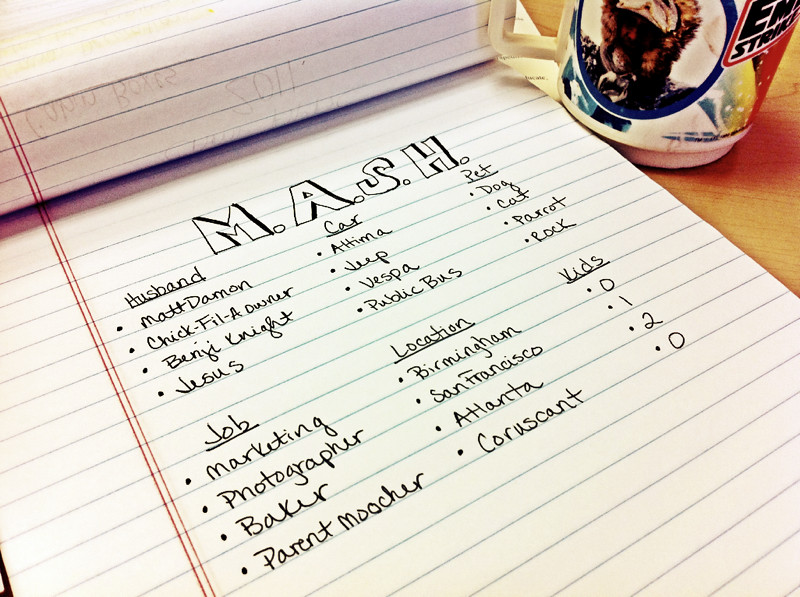 M.A.S.H.
Husband
• Matt Damon
• Chick-Fil-A owner
• Benji Knight
• Jesus
Car
• Altima
• Jeep
• Vespa
• Public Bus
Pet
• Dog
• Cat
• Parrot
• Rock
Job
• Marketing
• Photographer
• Baker
• Parent Moocher
Location
• Birmingham
• San Francisco
• Atlanta
• Coruscant
Kids
• 0
• 1
• 2
• 0
2011
EM
STRIK